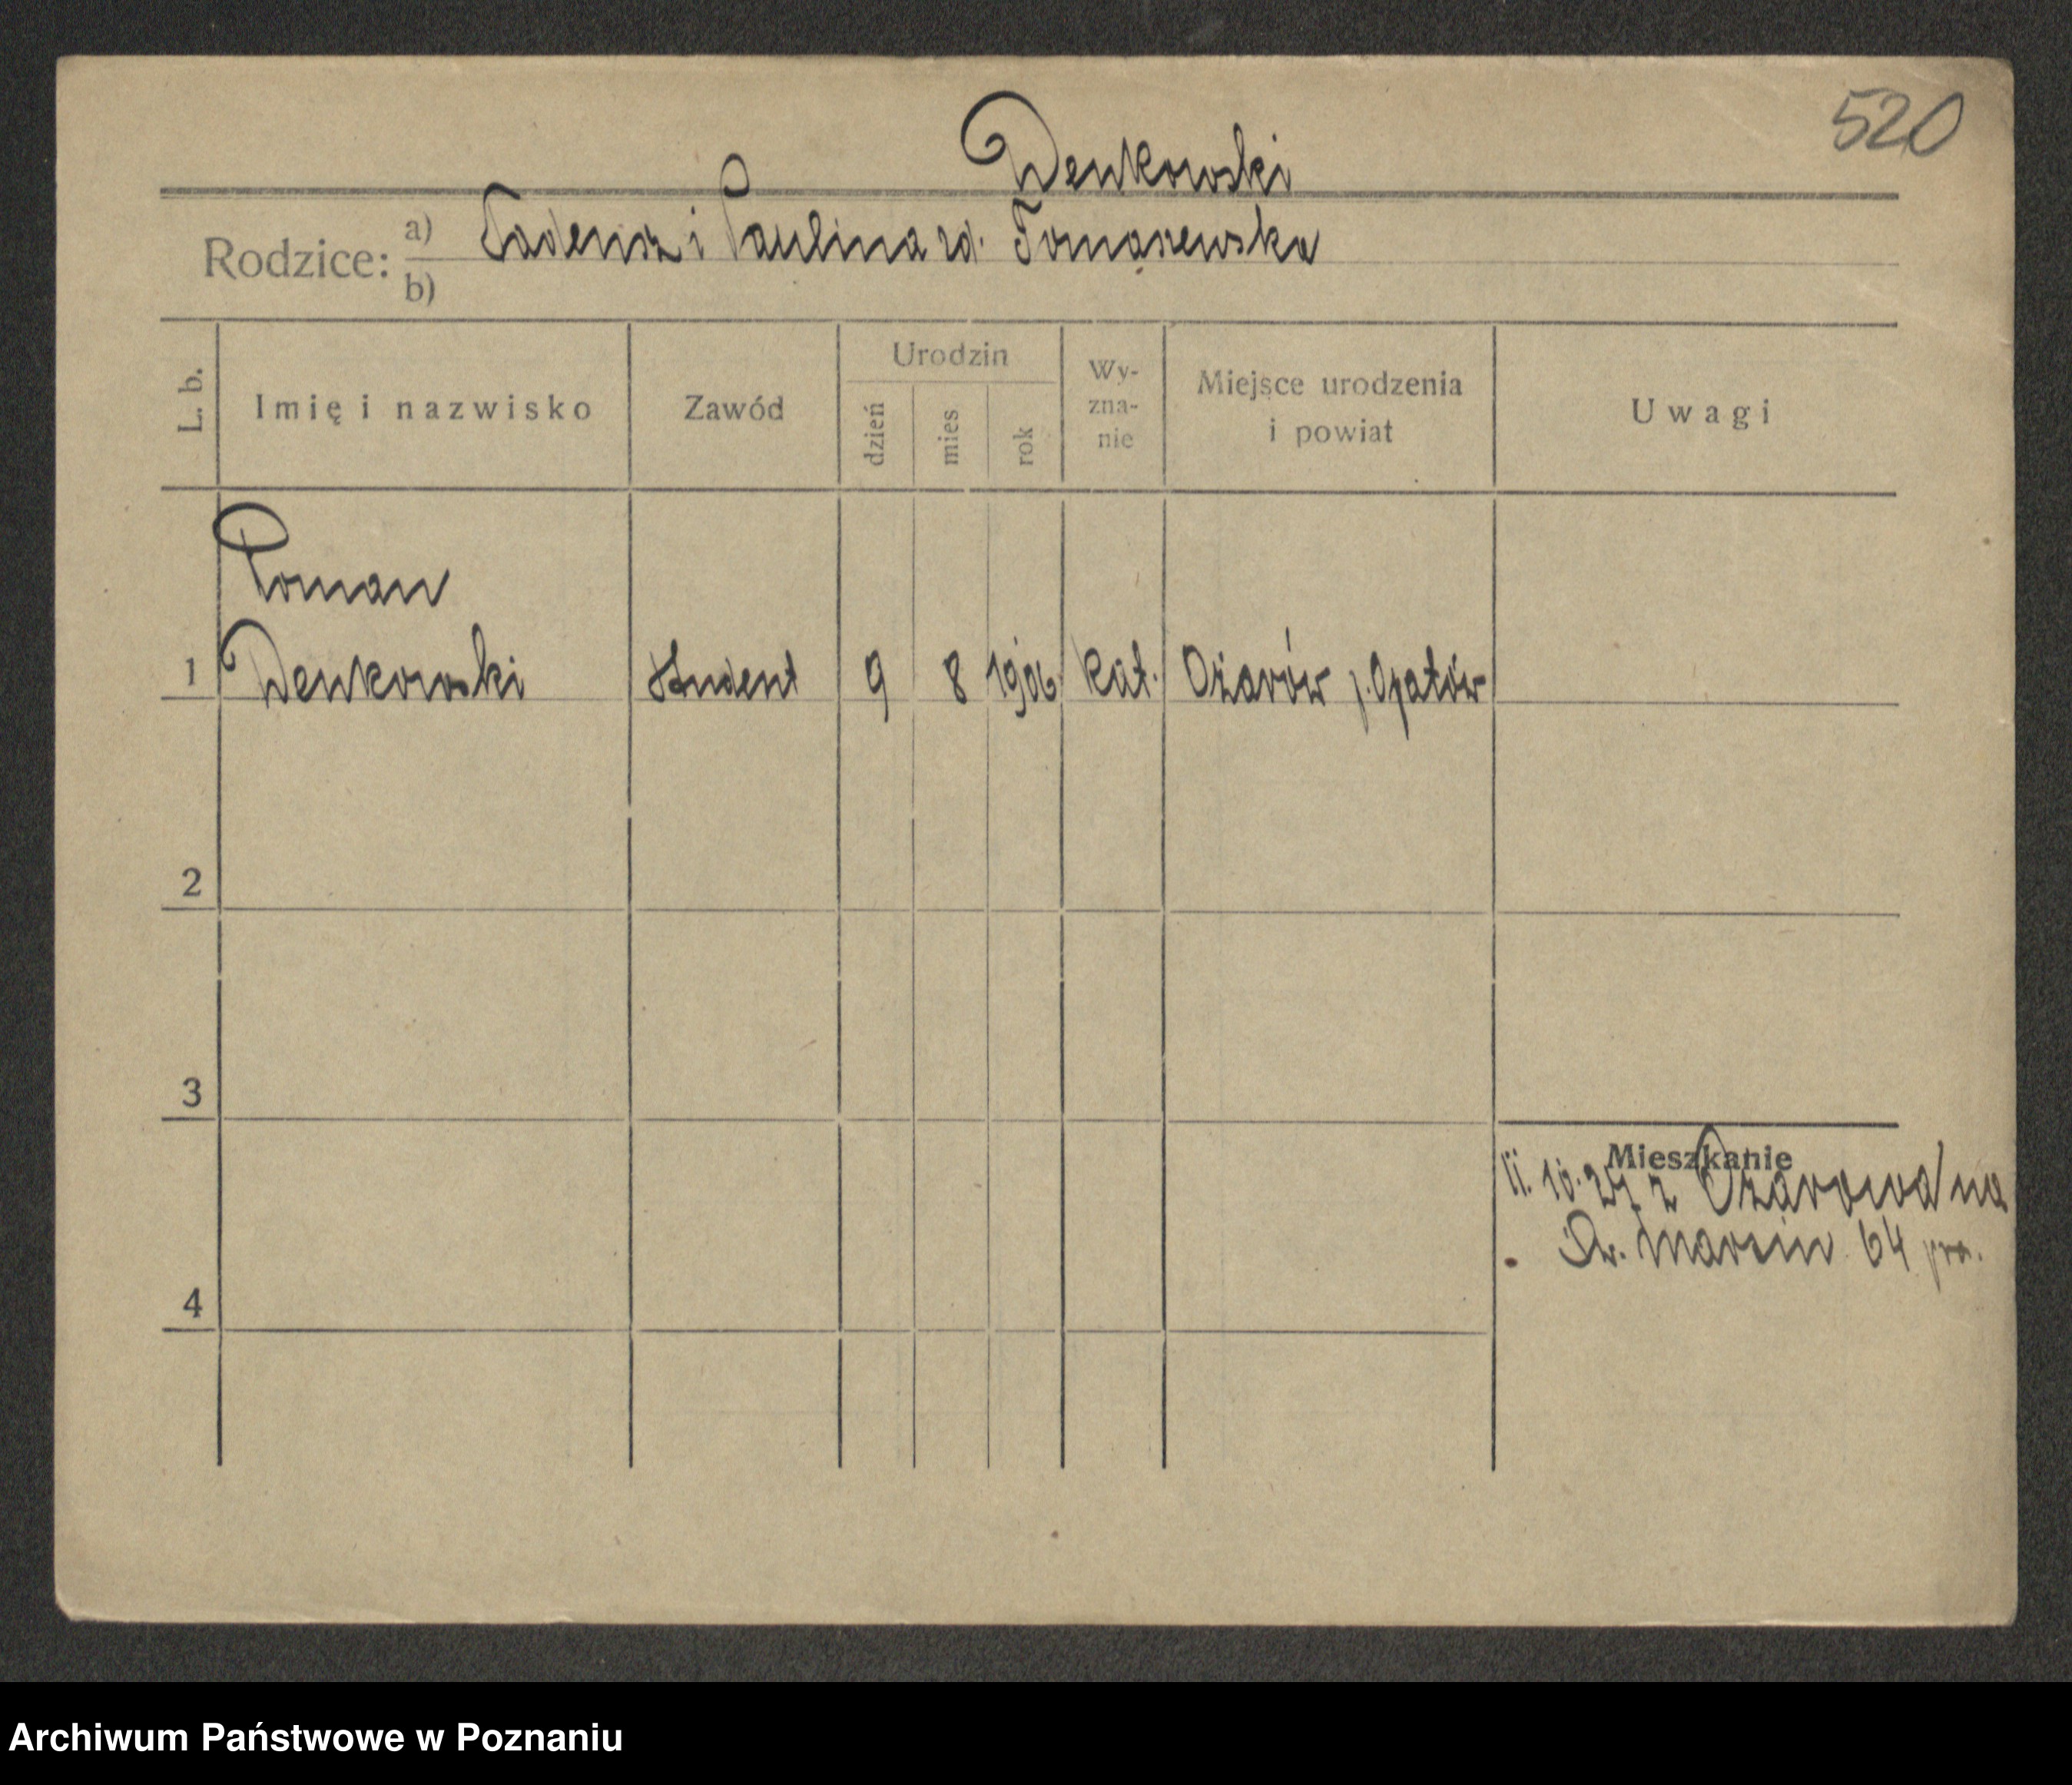 520
Denkowski
Rodzice: a) Tadeusz i Paulina rd. Tomaszewska
b)
L. b.
Imię i nazwisko
Zawód
Urodzin
dzień
mies
rok
Wy-
zna-
nie
Miejsce urodzenia
i powiat
Uwagi
Roman
1 Denkowski Student 9 8 1906 kat. Ożarów p. Opatów
2
3
4
Mieszkanie
z Ożarowa na
Św. Marcin 64
Archiwum Państwowe w Poznaniu